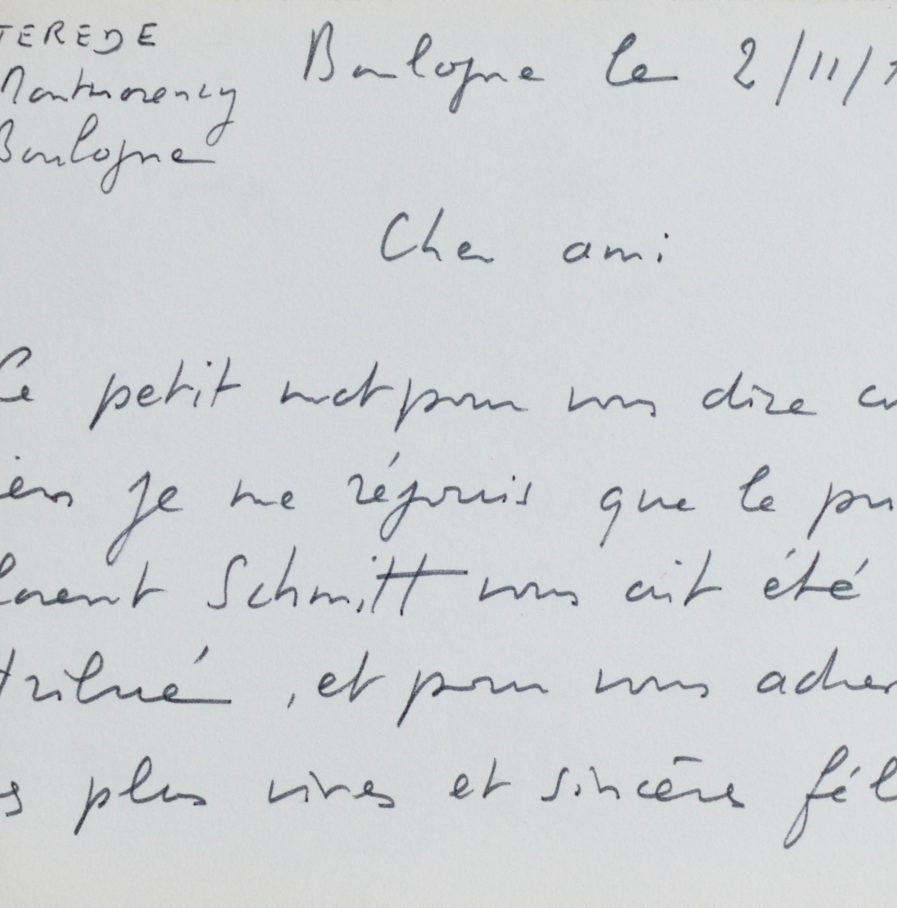 TEREDE
Montmorency
Boulogne
Boulogne le 2/11/1
Cher ami
Ce petit mot pour vous dire co
ien je me réjouis que le pri
lorent Schmitt vous ait été
ttribué, et pour vous adres
s plus vives et sincères fél